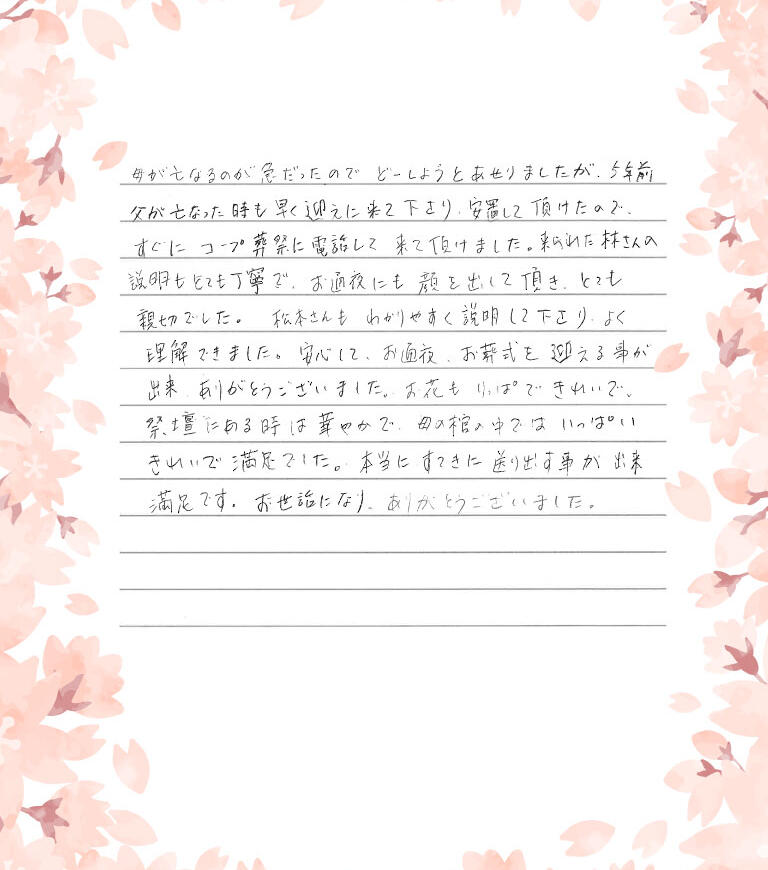 母が亡なるのが急だったので どーしようとあせりましたが、5年前
父が亡なった時も早く迎えに来て下さり、安置して頂けたので、
すぐに コープ葬祭に電話して 来て頂けました。来られた林さんの
説明もとても丁寧で、お通夜にも 顔を出して頂き、とても
親切でした。 松本さんも わかりやすく説明して下さり、よく
理解できました。安心して、お通夜、お葬式を迎える事が
出来、ありがとうございました。お花も りっぱで きれいで、
祭壇にある時は華やかで、母の棺の中では いっぱい
きれいで満足でした。本当に すてきに送り出す事が出来
満足です。お世話になり、ありがとうございました。